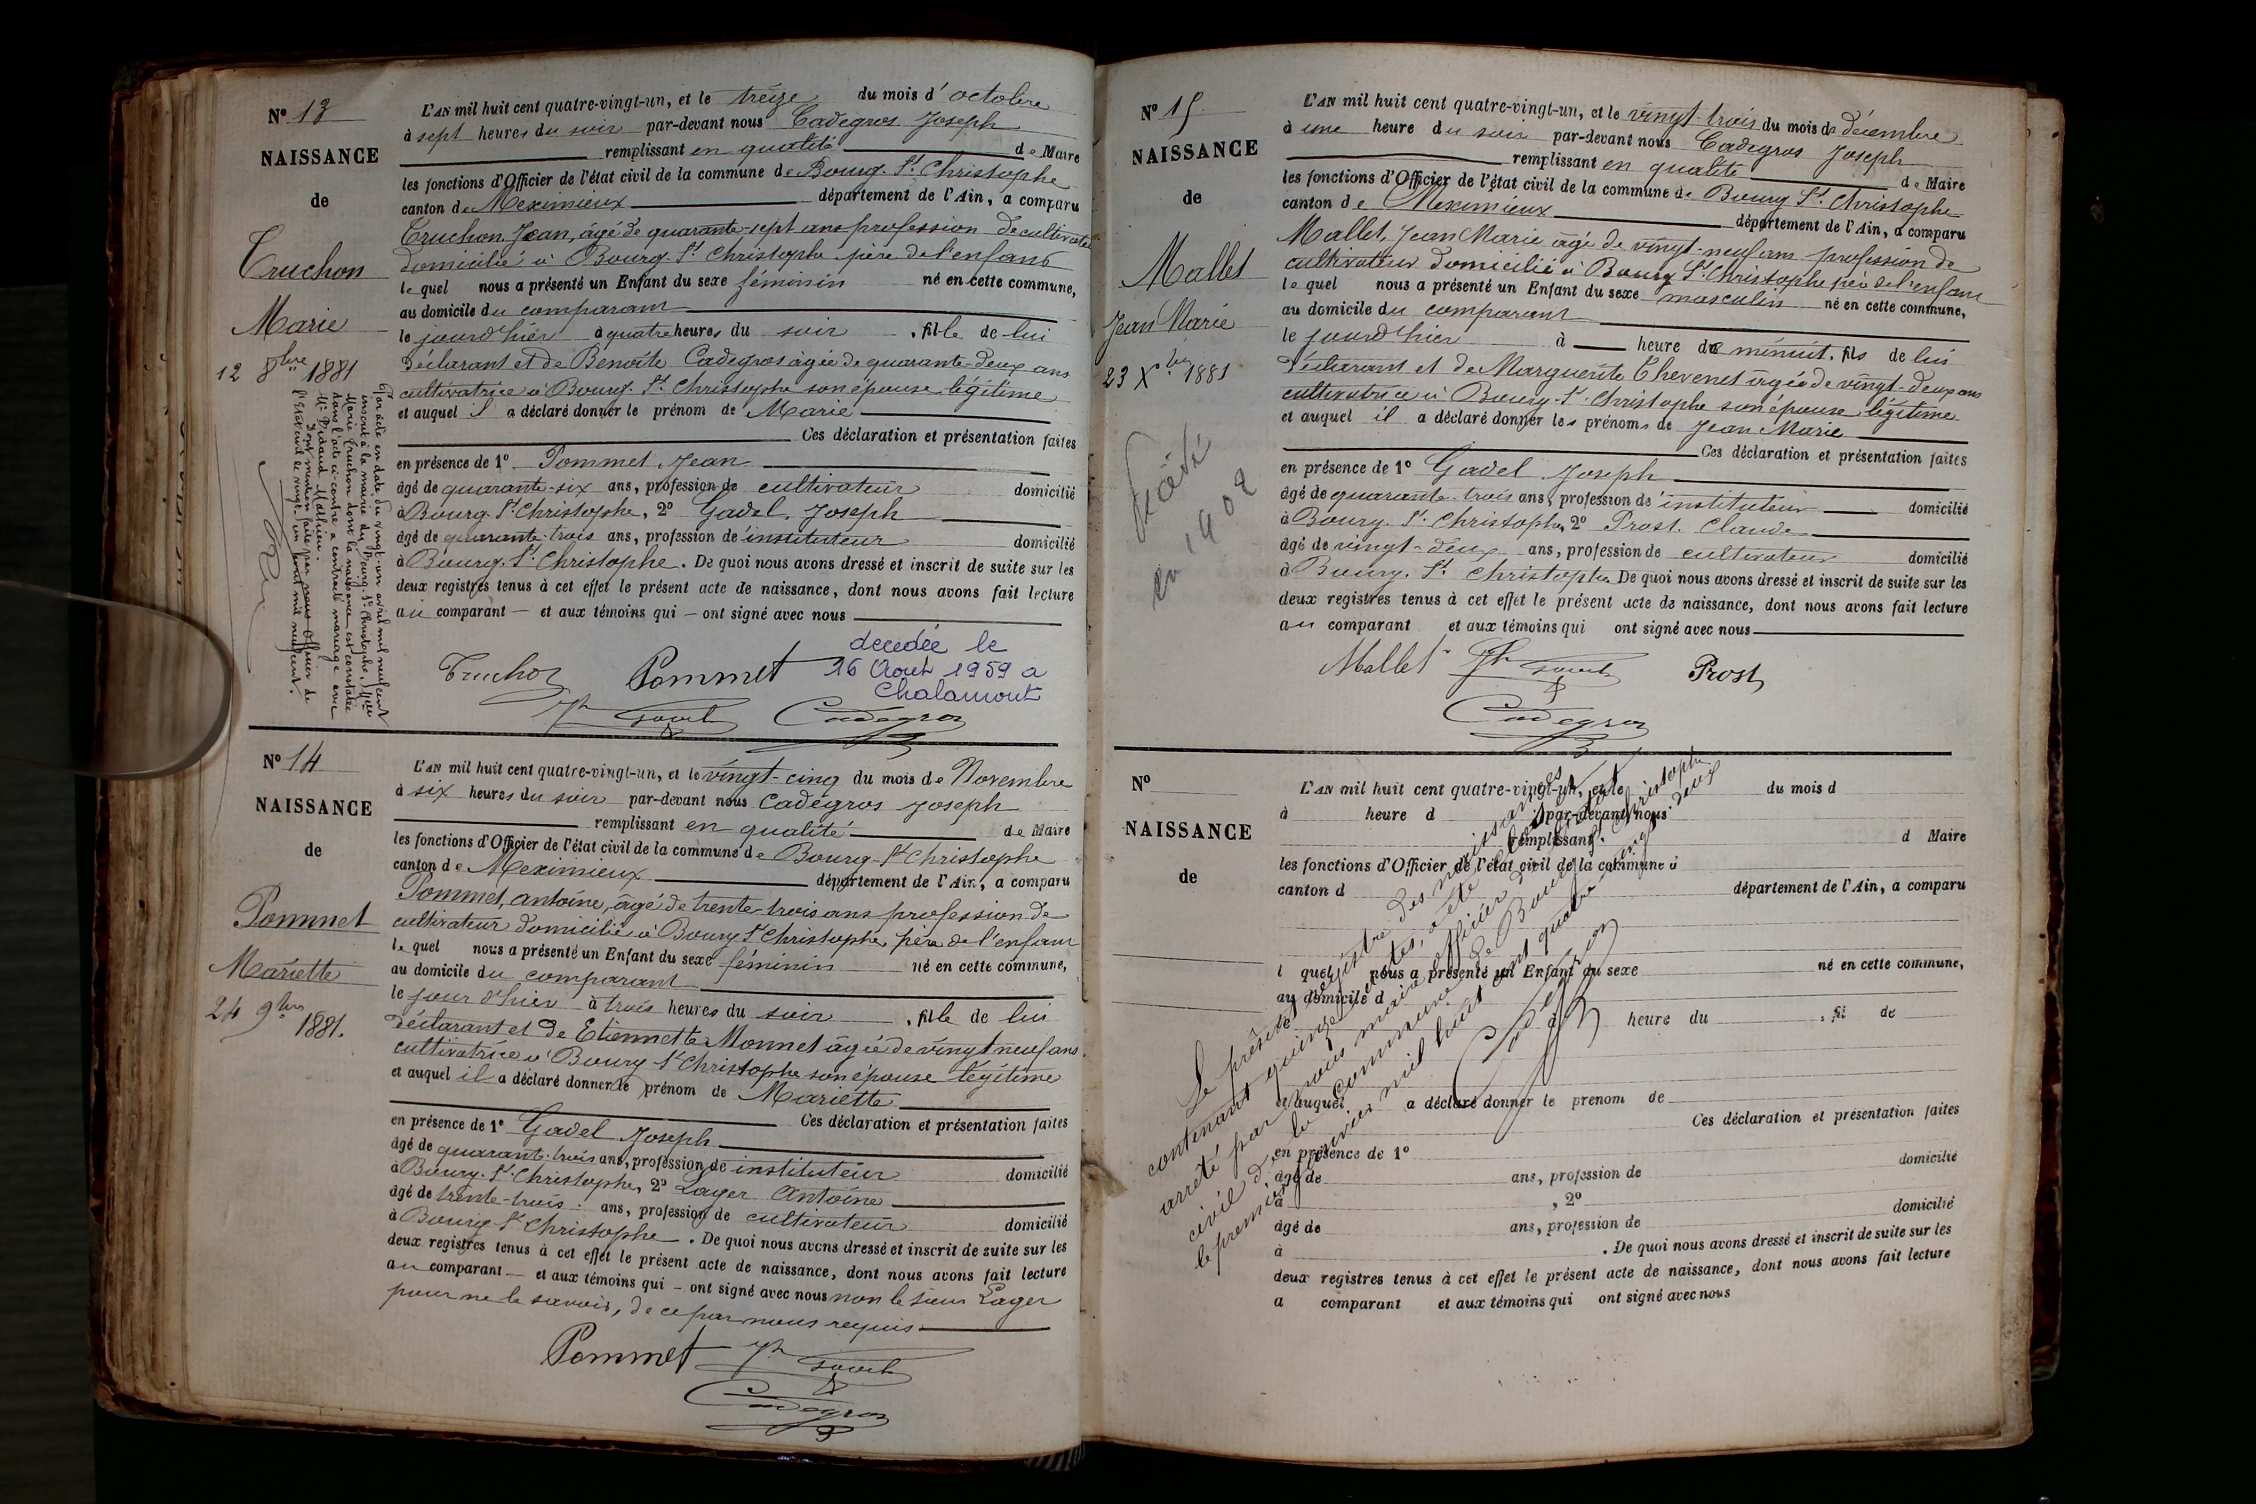 N° 13
NAISSANCE
de
Truchon
Marie
12 8bre 1881
L'AN mil huit cent quatre-vingt-un, et le treize du mois d'octobre
à sept heures du soir par-devant nous Cadegros Joseph
remplissant en qualité de Maire
les fonctions d'Officier de l'état civil de la commune de Bourg-St Christophe
canton de Meximieux département de l'Ain, a comparu
Truchon Jean, âgé de quarante-sept ans profession de cultivateur
domicilié à Bourg-St Christophe père de l'enfant
lequel nous a présenté un Enfant du sexe féminin né en cette commune,
au domicile du comparant
le jour d'hier à quatre heures du soir, fille de lui
déclarant et de Benoîte Cadegros âgée de quarante-deux ans
cultivatrice à Bourg-St Christophe son épouse légitime
et auquel il a déclaré donner le prénom de Marie
Ces déclaration et présentation faites
en présence de 1° Pommet Jean
âgé de quarante-six ans, profession de cultivateur domicilié
à Bourg-St Christophe, 2° Gadel Joseph
âgé de quarante-trois ans, profession de instituteur domicilié
à Bourg-St Christophe. De quoi nous avons dressé et inscrit de suite sur les
deux registres tenus à cet effet le présent acte de naissance, dont nous avons fait lecture
au comparant – et aux témoins qui – ont signé avec nous
Par acte en date du vingt-un avril mil neuf cent
inscrit à la mairie du Bourg-St-Christophe, Mlle
Marie Truchon dont la naissance est constatée
dans l'acte ci-contre a contracté mariage avec
Mr Mathieu.
Dont mention faite par nous officier de
l'Etat civil le vingt-un avril mil neuf cent.
decedée le
16 Aout 1959 a
Chalamont
Truchon Pommet
Jh Gadel Cadegros
N° 14
NAISSANCE
de
Pommet
Mariette
24 9bre 1881.
L'AN mil huit cent quatre-vingt-un, et le vingt-cinq du mois de Novembre
à six heures du soir par-devant nous Cadegros Joseph
remplissant en qualité de Maire
les fonctions d'Officier de l'état civil de la commune de Bourg-St Christophe
canton de Meximieux département de l'Ain, a comparu
Pommet, antoine, âgé de trente-trois ans profession de
cultivateur domicilié à Bourg St Christophe, père de l'enfant
lequel nous a présenté un Enfant du sexe féminin né en cette commune,
au domicile du comparant
le jour d'hier à trois heures du soir, fille de lui
déclarant et de Etiennette Monnet âgée de vingt neuf ans
cultivatrice à Bourg St Christophe son épouse légitime
et auquel il a déclaré donner le prénom de Mariette
Ces déclaration et présentation faites
en présence de 1° Gadel Joseph
âgé de quarante-trois ans, profession de instituteur domicilié
à Bourg-St Christophe, 2° Lager Antoine
âgé de trente-trois ans, profession de cultivateur domicilié
à Bourg-St Christophe. De quoi nous avons dressé et inscrit de suite sur les
deux registres tenus à cet effet le présent acte de naissance, dont nous avons fait lecture
au comparant – et aux témoins qui – ont signé avec nous non le sieur Lager
pour ne le savoir, de ce par nous requis
Pommet Jh Gadel
Cadegros
N° 15
NAISSANCE
de
Mallet
Jean Marie
23 Xbre 1881
en 1902
L'AN mil huit cent quatre-vingt-un, et le vingt-trois du mois de décembre
à une heure du soir par-devant nous Cadegros Joseph
remplissant en qualité de Maire
les fonctions d'Officier de l'état civil de la commune de Bourg St Christophe
canton de Meximieux département de l'Ain, a comparu
Mallet, Jean Marie âgé de vingt-neuf ans profession de
cultivateur domicilié à Bourg St Christophe père de l'enfant
lequel nous a présenté un Enfant du sexe masculin né en cette commune,
au domicile du comparant
le jour d'hier à heure de minuit, fils de lui
déclarant et de Marguerite Thevenet âgée de vingt-deux ans
cultivatrice à Bourg-St Christophe son épouse légitime
et auquel il a déclaré donner les prénoms de Jean Marie
Ces déclaration et présentation faites
en présence de 1° Gadel Joseph
âgé de quarante-trois ans, profession de instituteur domicilié
à Bourg-St Christophe, 2° Prost Claude
âgé de vingt-deux ans, profession de cultivateur domicilié
à Bourg-St Christophe De quoi nous avons dressé et inscrit de suite sur les
deux registres tenus à cet effet le présent acte de naissance, dont nous avons fait lecture
au comparant et aux témoins qui ont signé avec nous
Mallet Jh Gadel Prost
Cadegros
N°
NAISSANCE
de
L'AN mil huit cent quatre-vingt-un, et le du mois d
à heure d par-devant nous
remplissant d Maire
les fonctions d'Officier de l'état civil de la commune d
canton d département de l'Ain, a comparu
l quel nous a présenté un Enfant du sexe né en cette commune,
au domicile d
le à heure du, fil de
et auquel a déclaré donner le prénom de
Ces déclaration et présentation faites
en présence de 1°
âgé de ans, profession de domicilié
à, 2°
âgé de ans, profession de domicilié
à. De quoi nous avons dressé et inscrit de suite sur les
deux registres tenus à cet effet le présent acte de naissance, dont nous avons fait lecture
a comparant et aux témoins qui ont signé avec nous
Le présent registre des naissances
contenant quinze actes, a été clos et
arrêté par nous maire officier de l'état
civil de la commune de Bourg-St-Christophe
le premier janvier mil huit cent quatre-vingt-deux
Cadegros